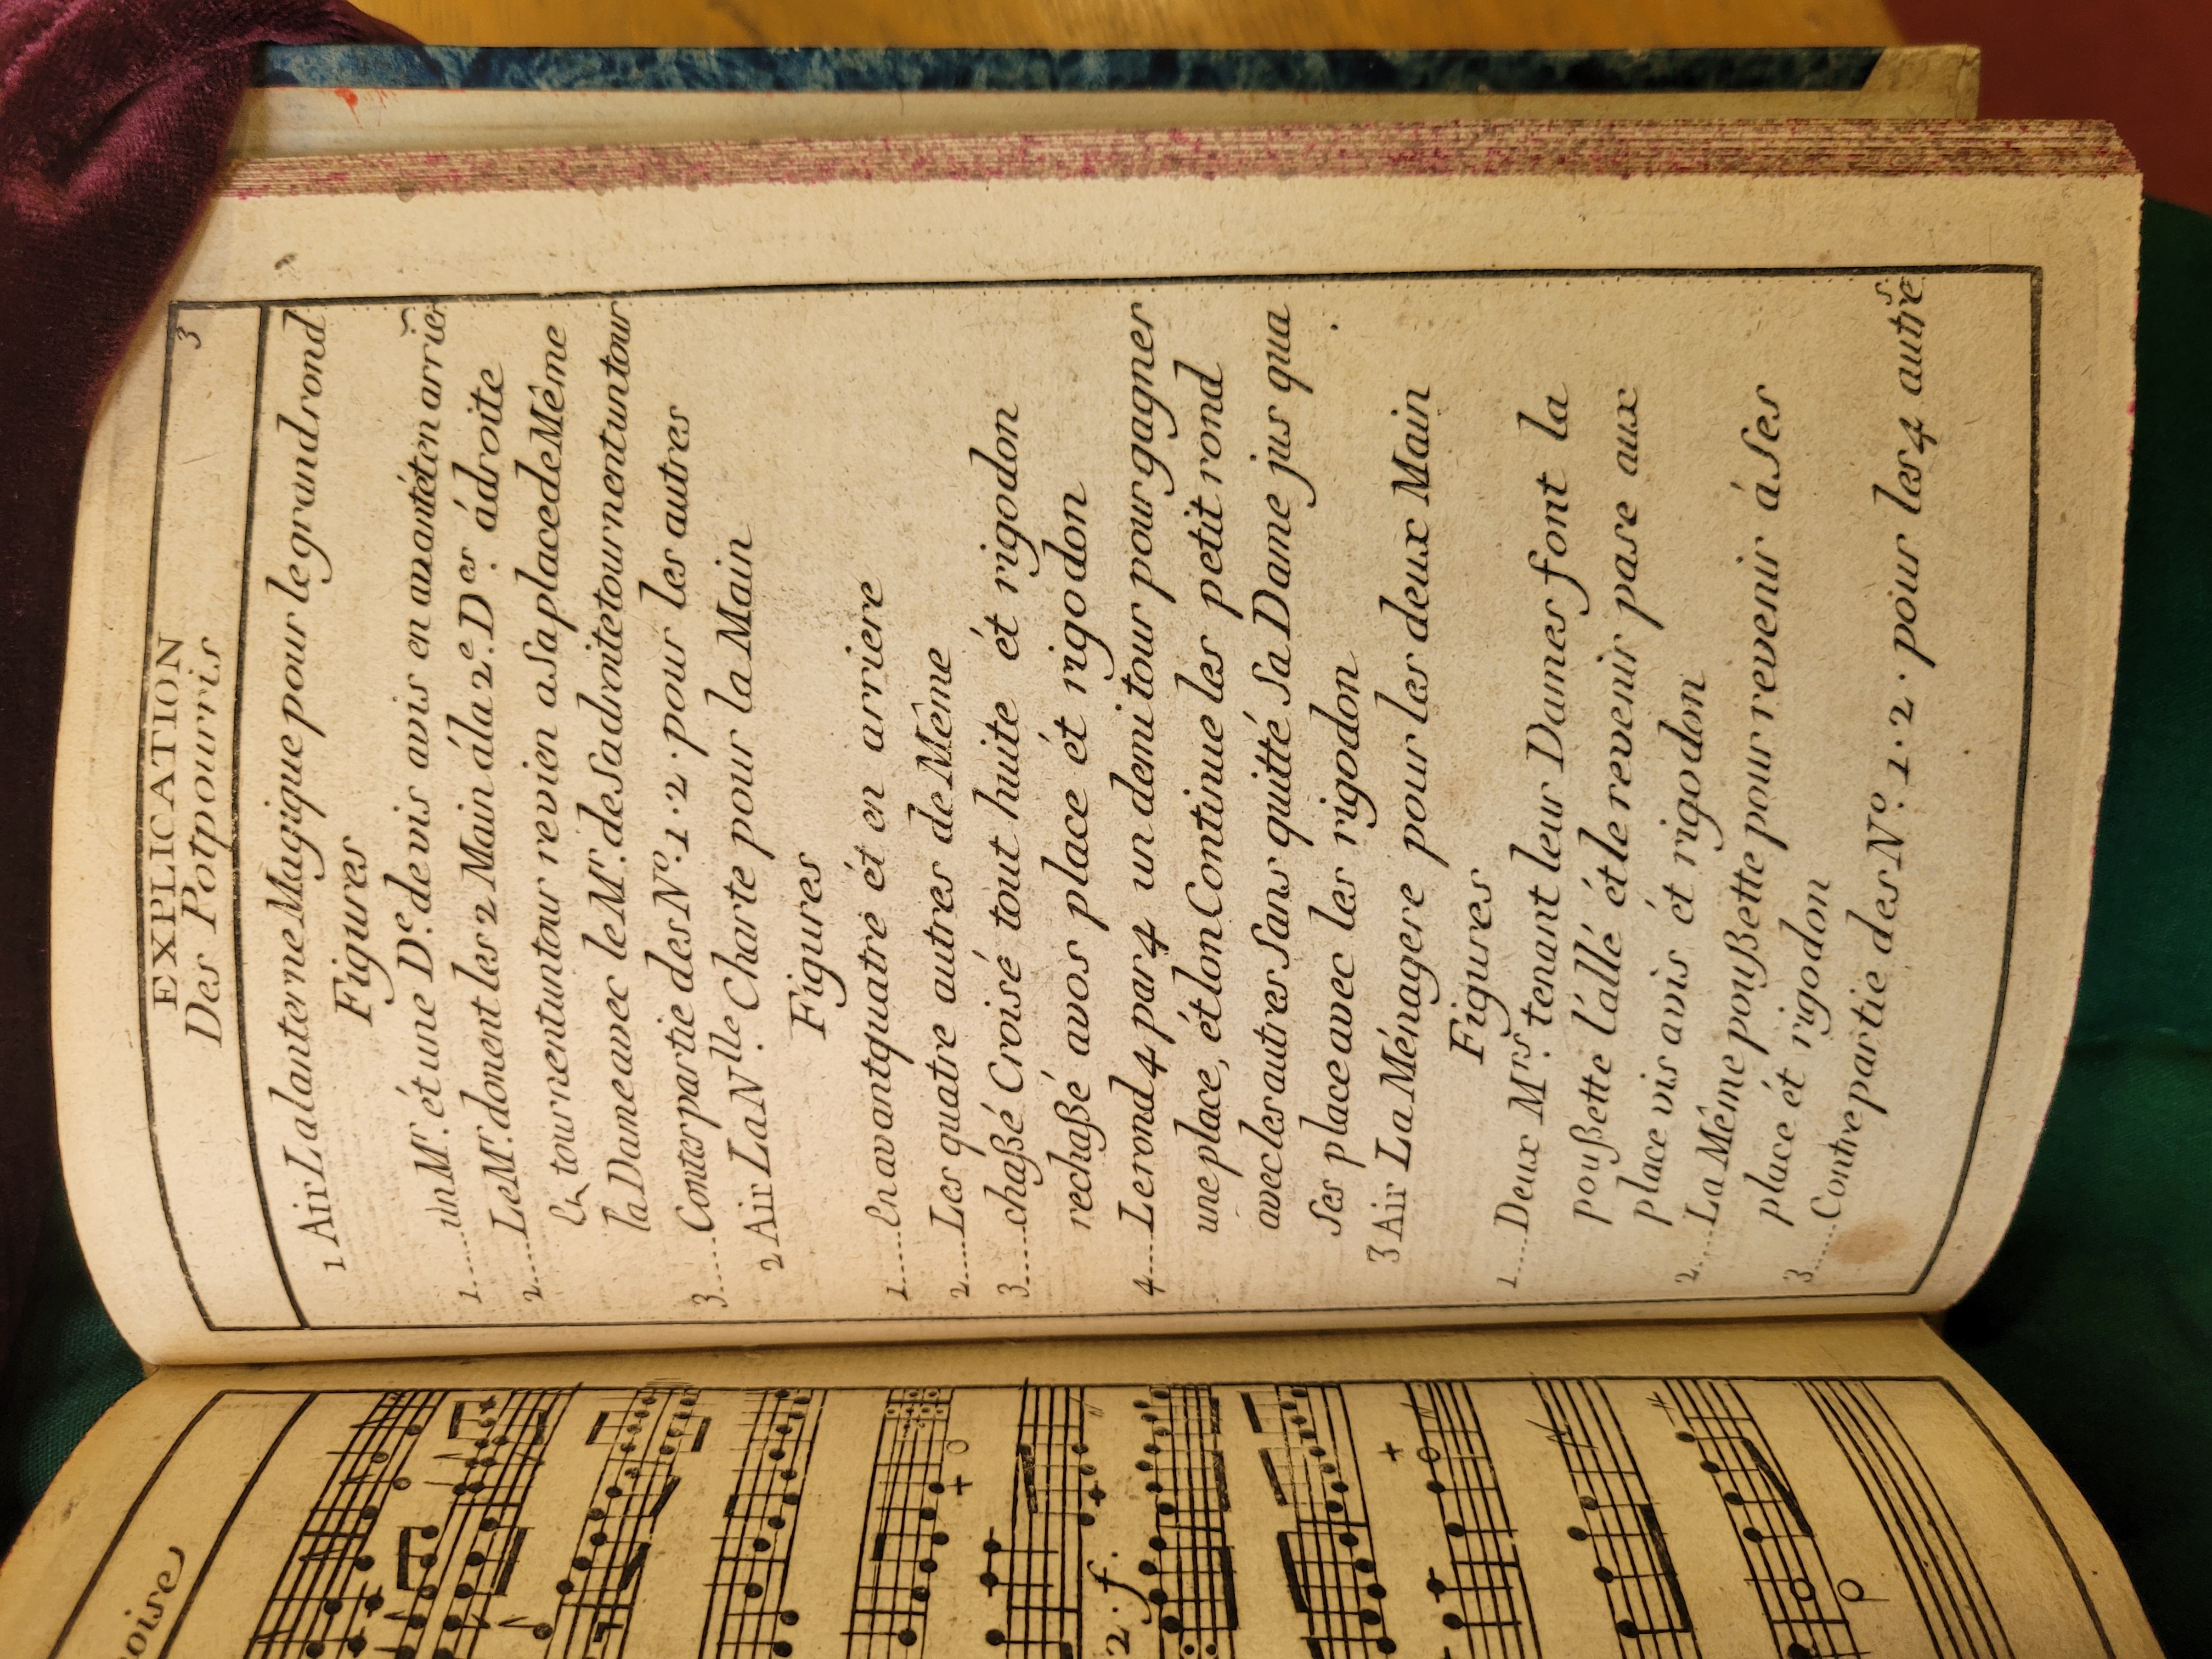 3
EXPLICATION
Des Potpourris
1 Air La lanterne Magique pour le grand rond
Figures
1.....un Mr. ét une De. de vis avis en avant ét en arrier
Le Mr. donent les 2 Main á la 2e. Der. ádroite
2.....En tournent un tour revien a Sa place de Même
la Dame avec le Mr. de Sa droite tournent un tour
3.....Conterpartie des No. 1. 2. pour les autres
2 Air La Nlle. Charte pour la Main
Figures
1.....En avant quatre ét en arriere
2.....Les quatre autres de Même
3.....chaßé Croisé tout huite ét rigodon
rechaßé avos place ét rigodon
4....Le rond 4 par 4 un demi tour pour gagner
une place, ét lon Continue les petit rond
avec les autres Sans quitté Sa Dame jus qua
Ses place avec les rigodon
3 Air La Ménagere pour les deux Main
Figures
1.....Deux Mrs. tenant leur Dames font la
poußette l'allé ét le revenir pase aux
place vis avis ét rigodon
2.....La Même poußette pour revenir á Ses
place ét rigodon
3.....Contre partie des No. 1. 2. pour les 4 autres
noise
2. f.